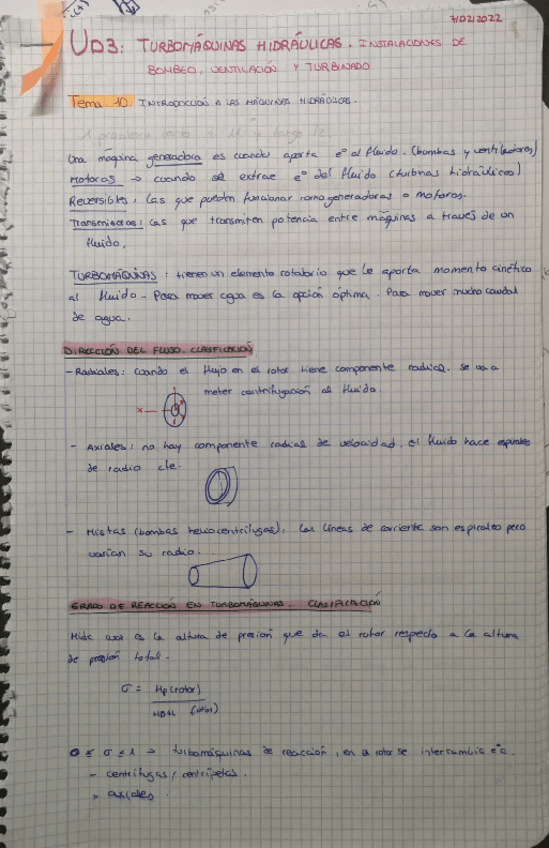 7/02/2022
UD3: TURBOMÁQUINAS HIDRÁULICAS. INSTALACIONES DE
BOMBEO, VENTILACIÓN Y TURBINADO
Tema 10: INTRODUCCIÓN A LAS MÁQUINAS HIDRÁULICAS.
Una máquina generadora es cuando aporta eª al fluido. (bombas y ventiladores)
Motoras → cuando se extrae eª del fluido (turbinas hidráulicas)
Reversibles: las que pueden funcionar como generadoras o motoras.
Transmisoras: las que transmiten potencia entre máquinas a través de un
fluido.
TURBOMÁQUINAS: tienen un elemento rotatorio que le aporta momento cinético
al fluido. Para mover agua es la opción óptima. Para mover mucho caudal
de agua.
DIRECCIÓN DEL FLUJO. CLASIFICACIÓN
- Radiales: cuando el flujo en el rotor tiene componente radial. se va a
meter centrifugación al fluido.
x
- Axiales: no hay componente radial de velocidad, el fluido hace espirales
de radio cte.
- Mixtas (bombas heliocentrífugas): las líneas de corriente son espirales pero
varían su radio.
GRADO DE REACCIÓN EN TURBOMÁQUINAS. CLASIFICACIÓN
Mide es la altura de presión que da el rotor respecto a la altura
de presión total.
σ = Hp(rotor)
(rotor)
0 ≤ σ ≤ 1 → turbomáquinas de reacción, en el rotor se intercambia
- centrífugas / centrípetas.
- axiales.